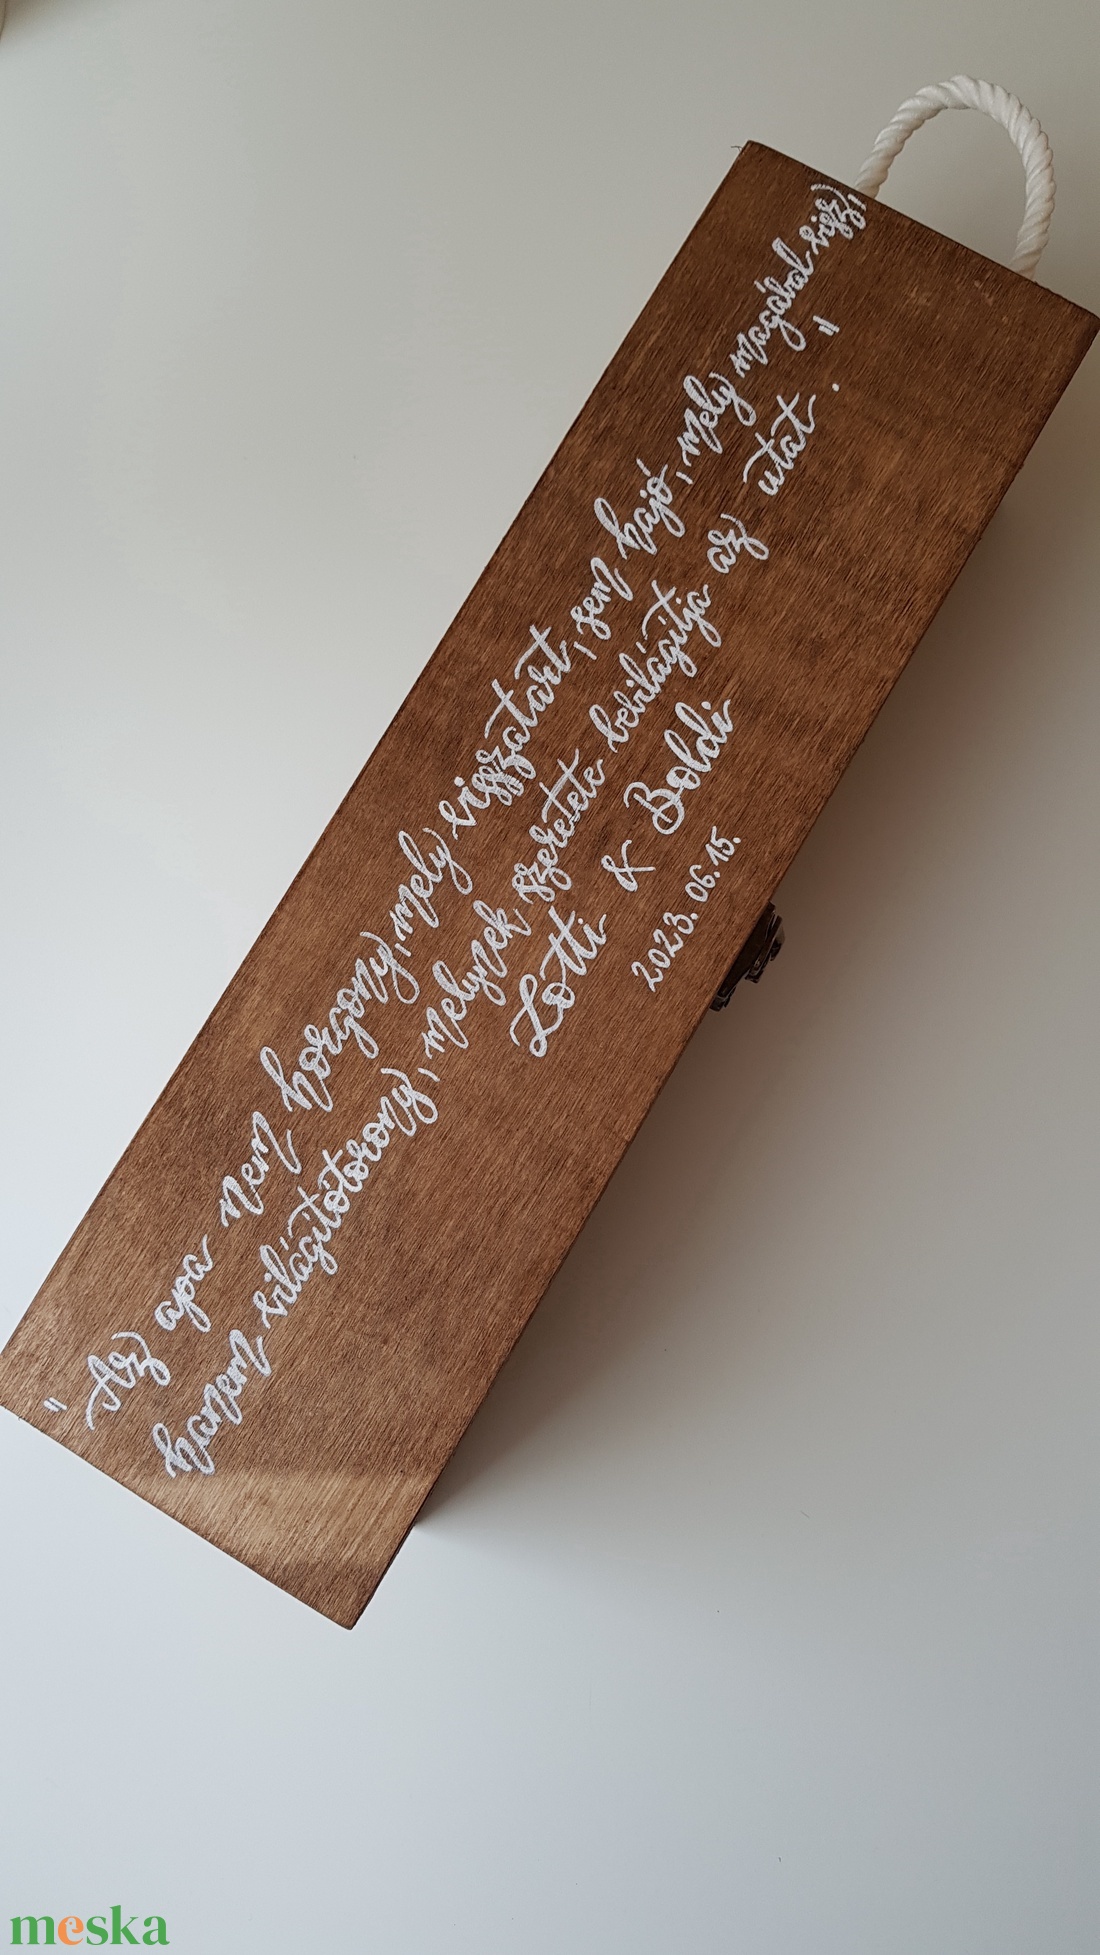 "Az apa nem horgony, mely visszatart, sem hajó, mely magával visz,
hanem világítótorony, melynek szeretete bebilágítja az utat."
Lotti & Boldi
2023.06.15.
meska